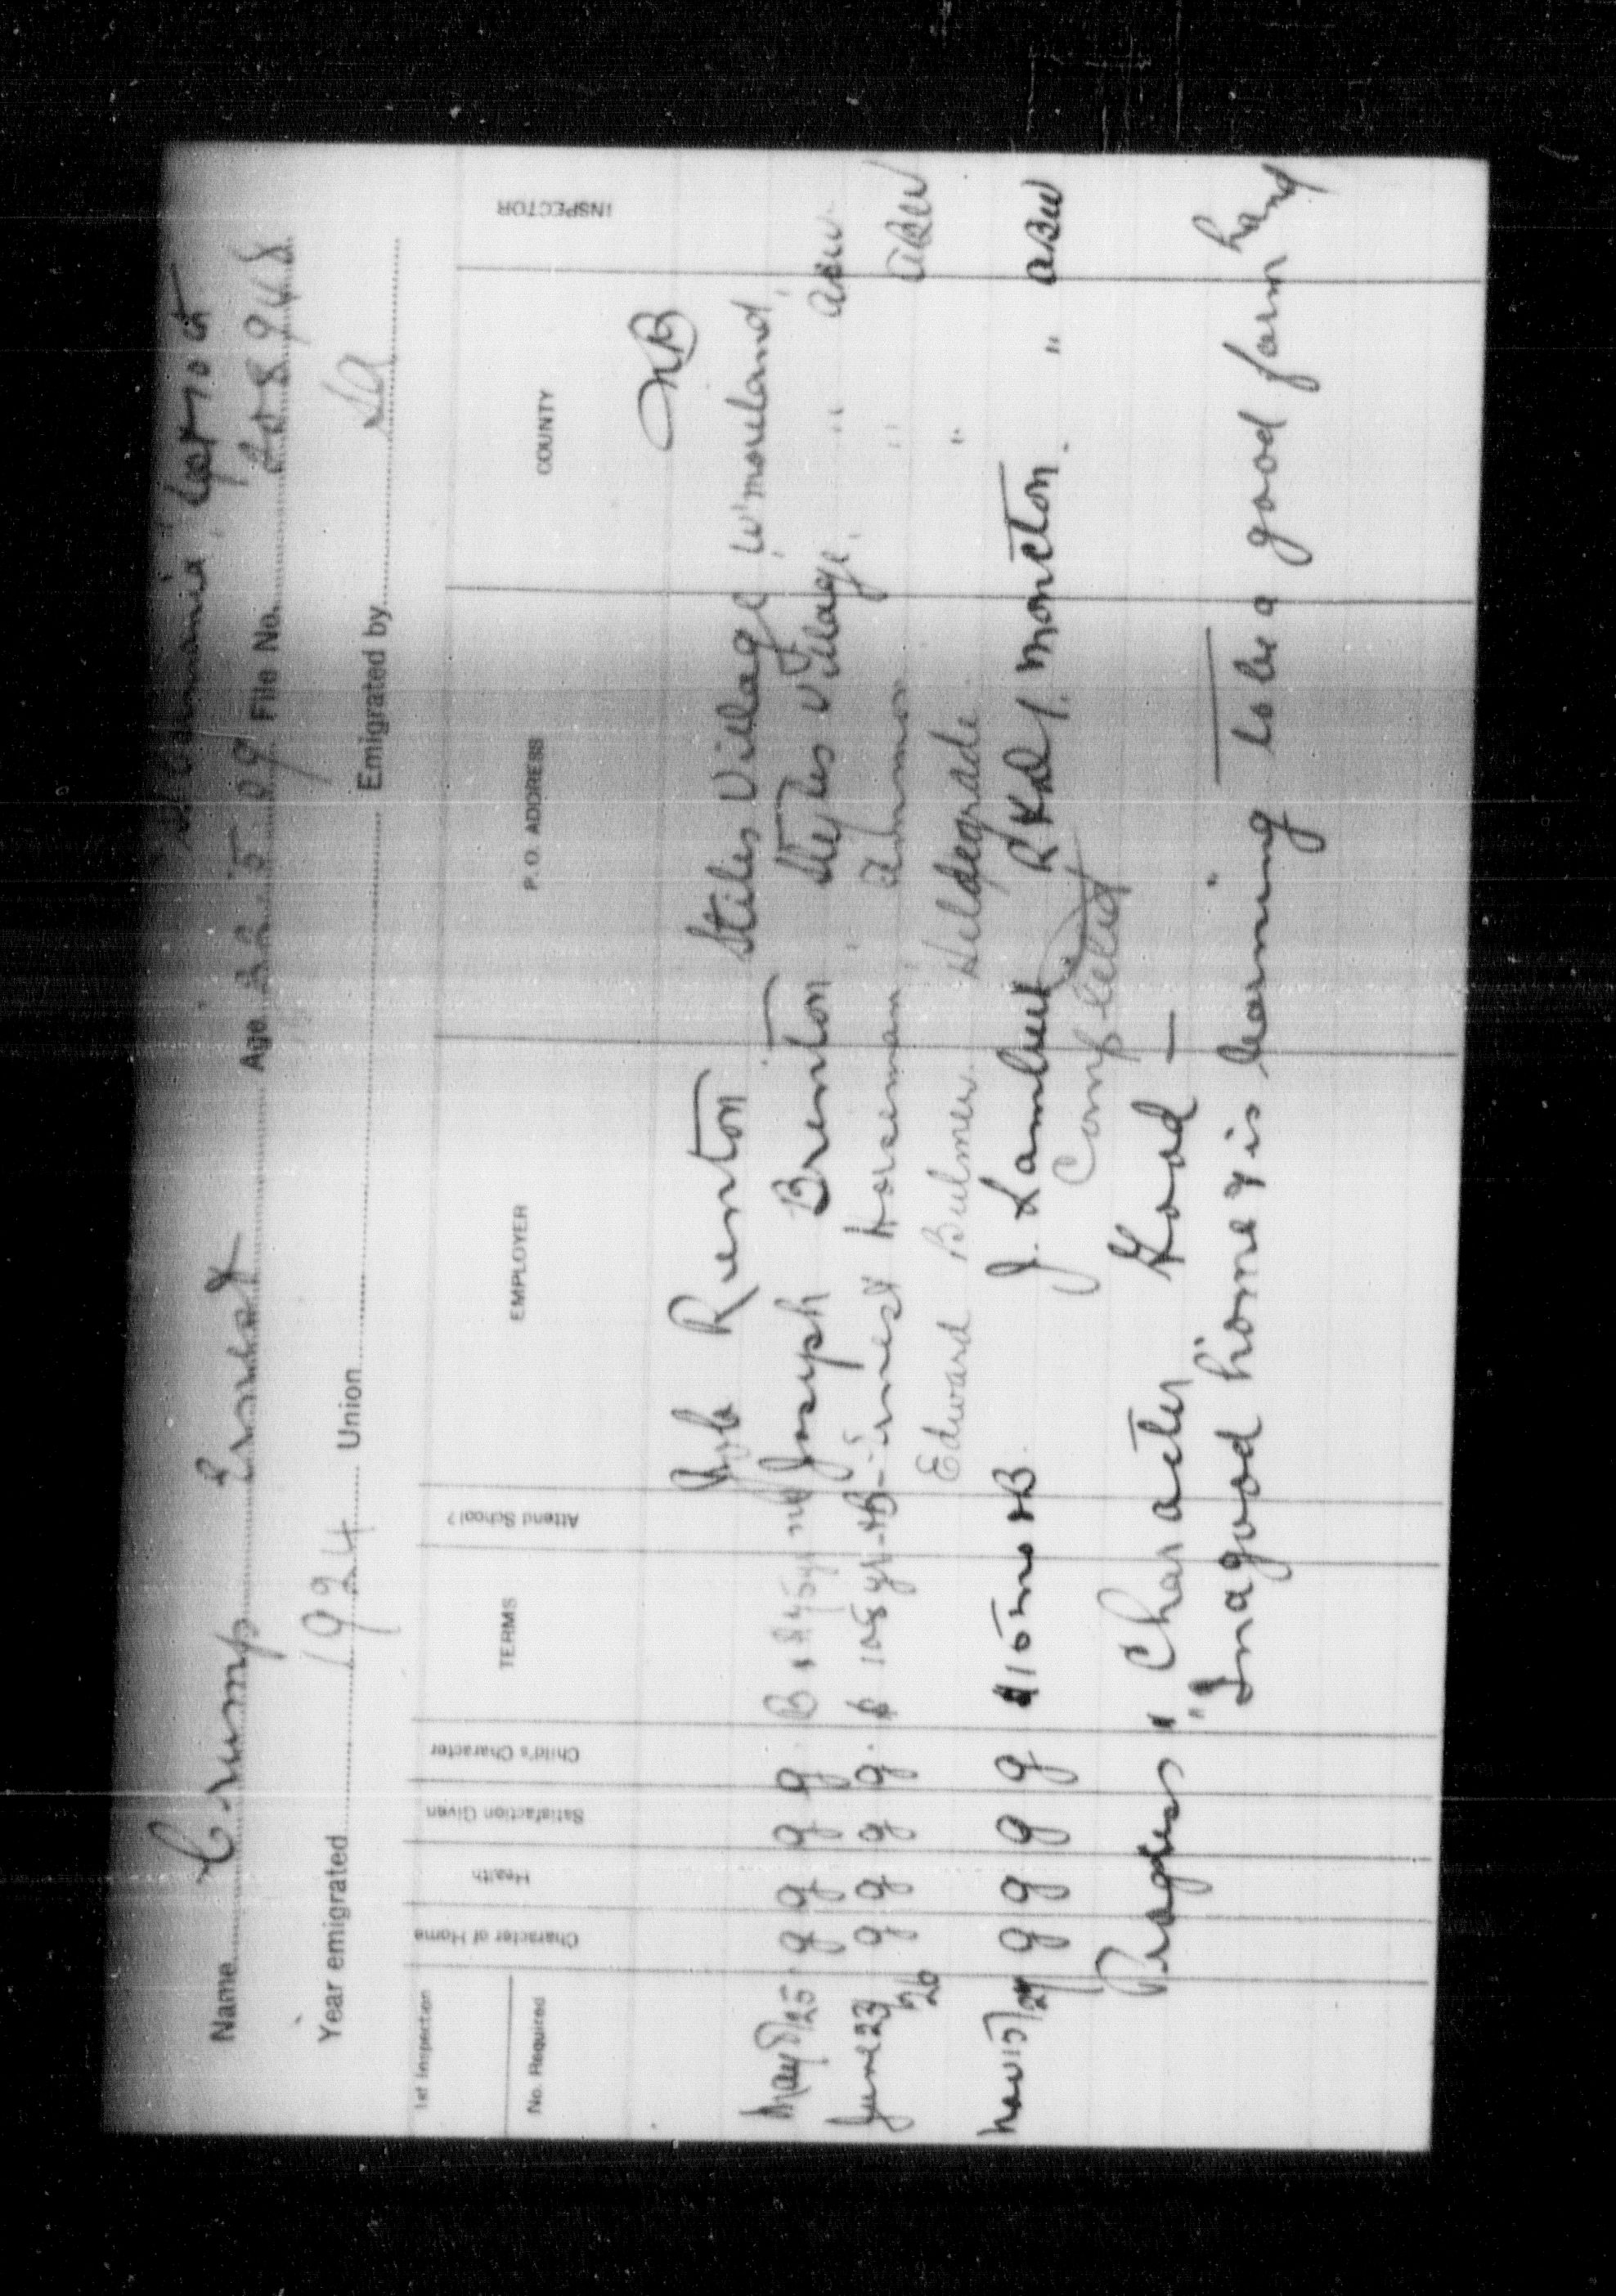 Name Crump Ernest Age 22.5.09 File No. 208948
Year emigrated 1924 Union Emigrated by SA
1st Inspection
No. Required
Character of Home
Health
Satisfaction Given
Child's Character
TERMS
Attend School?
EMPLOYER
P. O. ADDRESS
COUNTY
INSPECTOR
NB
Job Renton Stiles Village W'moreland
May 8/25 g g g g B + no Joseph Brenton Styles Village " ABW
June 23 g g g g. Ernest Horseman Ammon " ABW
26 Edward Bulmer Hildegrade "
Nov 15/27 g g g g $10 mo + B J. Lambert R R # 1 Moncton " ABW
Completed
Progress " Character Good —
"In a good home & is learning to be a good farm hand